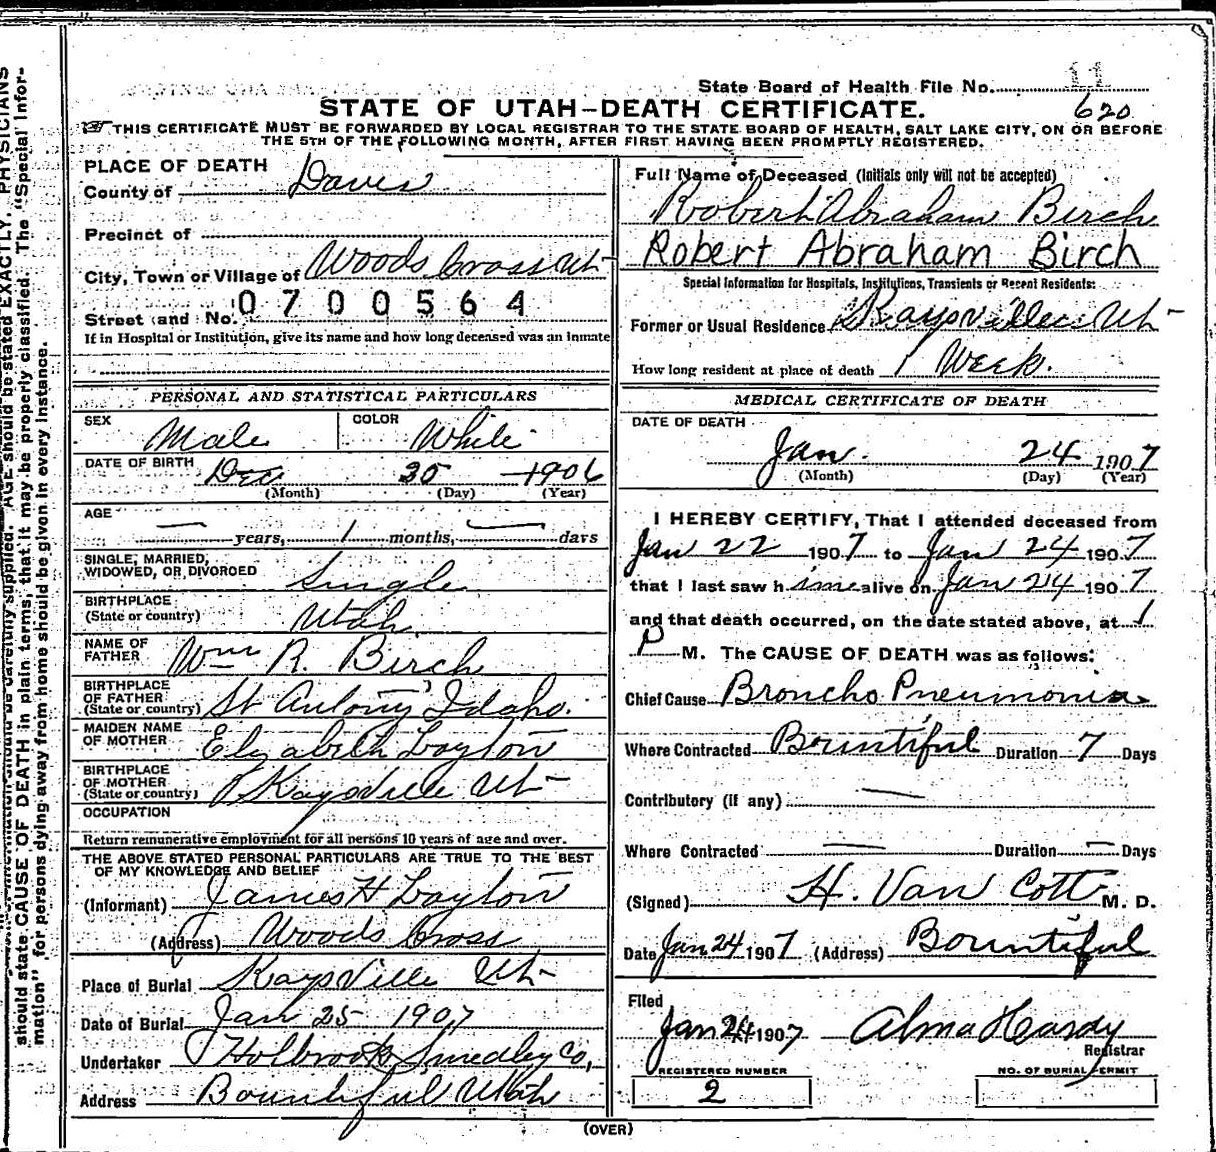 State Board of Health File No. 11
620
STATE OF UTAH—DEATH CERTIFICATE.
☞ THIS CERTIFICATE MUST BE FORWARDED BY LOCAL REGISTRAR TO THE STATE BOARD OF HEALTH, SALT LAKE CITY, ON OR BEFORE
THE 5TH OF THE FOLLOWING MONTH, AFTER FIRST HAVING BEEN PROMPTLY REGISTERED.
PLACE OF DEATH
County of Davis
Precinct of
City, Town or Village of Woods Cross Ut
0700564
Street and No.
If in Hospital or Institution, give its name and how long deceased was an inmate
PERSONAL AND STATISTICAL PARTICULARS
SEX Male COLOR White
DATE OF BIRTH Dec 30 1906
(Month) (Day) (Year)
AGE — years, 1 months, — days
SINGLE, MARRIED,
WIDOWED, OR DIVORCED Single
BIRTHPLACE
(State or country) Utah
NAME OF
FATHER Wm R. Birch
BIRTHPLACE
OF FATHER
(State or country) St Antony Idaho.
MAIDEN NAME
OF MOTHER Elizabeth Layton
BIRTHPLACE
OF MOTHER
(State or country) Kaysville Ut
OCCUPATION
Return remunerative employment for all persons 10 years of age and over.
THE ABOVE STATED PERSONAL PARTICULARS ARE TRUE TO THE BEST
OF MY KNOWLEDGE AND BELIEF
(Informant) James H Layton
(Address) Woods Cross
Place of Burial Kaysville Ut
Date of Burial Jan 25 1907
Undertaker Holbrook Smedley Co,
Address Bountiful Utah
Full Name of Deceased (Initials only will not be accepted)
Robert Abraham Birch
Robert Abraham Birch
Special Information for Hospitals, Institutions, Transients or Recent Residents:
Former or Usual Residence Kaysville Ut
How long resident at place of death 1 Week.
MEDICAL CERTIFICATE OF DEATH
DATE OF DEATH
Jan. 24 1907
(Month) (Day) (Year)
I HEREBY CERTIFY, That I attended deceased from
Jan 22 1907 to Jan 24 1907
that I last saw him alive on Jan 24 1907
and that death occurred, on the date stated above, at 1
P M. The CAUSE OF DEATH was as follows:
Chief Cause Broncho Pneumonia
Where Contracted Bountiful Duration 7 Days
Contributory (if any) —
Where Contracted — Duration — Days
(Signed) H. Van Cott M. D.
Date Jan 24 1907 (Address) Bountiful
Filed
Jan 24 1907 Alma Hardy
Registrar
REGISTERED NUMBER
2
NO. OF BURIAL PERMIT
(OVER)
AGE should be stated EXACTLY. PHYSICIANS
should state CAUSE OF DEATH in plain terms, that it may be properly classified. The "Special Infor-
mation" for persons dying away from home should be given in every instance.